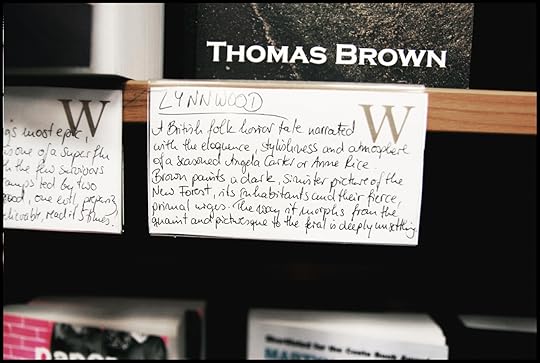 THOMAS BROWN
W
's most epic,
one of a superflu
the few survivors
camps led by two
good, one evil, preparing
believable, read it 5 times.
LYNNWOOD
W
A British folk horror tale narrated
with the eloquence, stylishness and atmosphere
of a seasoned Angela Carter or Anne Rice
Brown paints a dark, sinister picture of the
New Forest, its inhabitants and their fierce,
primal urges. The way it morphs from the
quaint and picturesque to the feral is deeply unsettling
Shortlisted for the Costa Book